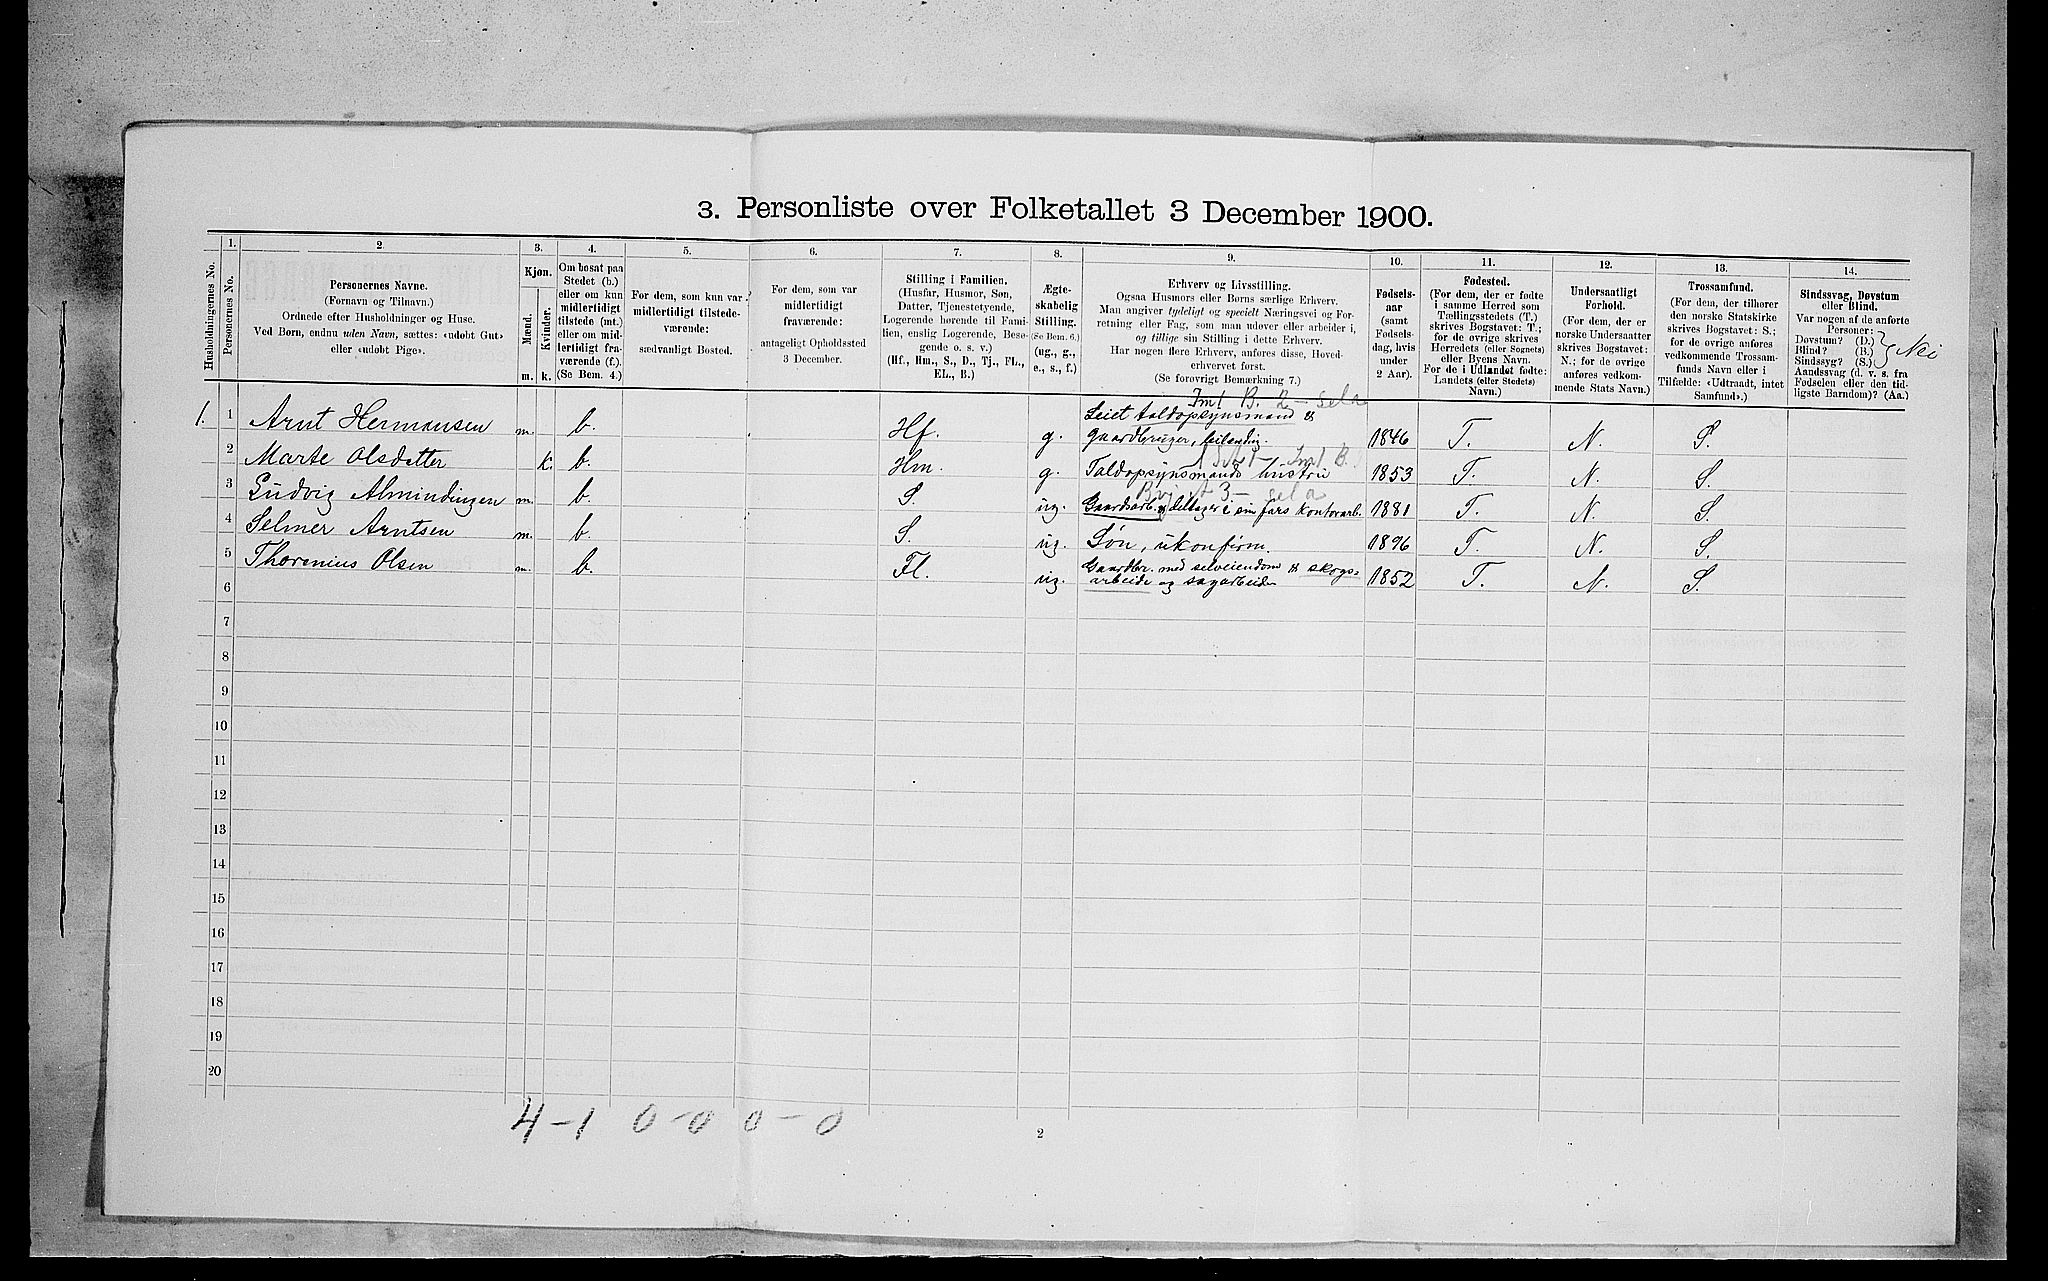 3. Personliste over Folketallet 3 December 1900.
Husholdningernes No.
1.
Personernes No.
2
Personernes Navne.
(Fornavn og Tilnavn.)
Ordnede efter Husholdninger og Huse.
Ved Børn, endnu uden Navn, sættes: «udøbt Gut»
eller «udøbt Pige».
3.
Kjøn.
Mænd.
Kvinder.
m. k.
4.
Om bosat paa
Stedet (b.)
eller om kun
midlertidigt
tilstede (mt.)
eller om mid-
lertidigt fra-
værende (f.).
(Se Bem. 4.)
5.
For dem, som kun var
midlertidigt tilstede-
værende:
sædvanligt Bosted.
6.
For dem, som var
midlertidigt
fraværende:
antageligt Opholdssted
3 December.
7.
Stilling i Familien.
(Husfar, Husmor, Søn,
Datter, Tjenestetyende,
Logerende hørende til Fami-
lien, enslig Logerende, Besø-
gende o. s. v.)
(Hf., Hm., S., D., Tj., FL.,
EL., B.)
8.
Ægte-
skabelig
Stilling.
(Se Bem. 6.)
(ug., g.,
e., s., f.)
9.
Erhverv og Livsstilling.
Ogsaa Husmors eller Børns særlige Erhverv.
Man angiver tydeligt og specielt Næringsvei og For-
retning eller Fag, som man udøver eller arbeider i,
og tillige sin Stilling i dette Erhverv.
Har nogen flere Erhverv, anføres disse, Hoved-
erhvervet først.
(Se forøvrigt Bemærkning 7.)
10.
Fødsels-
aar
(samt
Fødsels-
dag, hvis
under
2 Aar).
11.
Fødested.
(For dem, der er fødte
i samme Herred som
Tællingsstedets (T.)
skrives Bogstavet: T.;
for de øvrige skrives
Herredets (eller Sognets)
eller Byens Navn.
For de i Udlandet fødte:
Landets (eller Stedets)
Navn.)
12.
Undersaatligt
Forhold.
(For dem, der er
norske Undersaatter
skrives Bogstavet:
N.; for de øvrige
anføres vedkom-
mende Stats Navn.)
13.
Trossamfund.
(For dem, der tilhører
den norske Statskirke
skrives Bogstavet: S.;
for de øvrige anføres
vedkommende Trossam-
funds Navn eller i
Tilfælde: «Udtraadt, intet
Samfund».)
14.
Sindssvag, Døvstum
eller Blind.
Var nogen af de anførte
Personer:
Døvstum? (D.)
Blind? (B.)
Sindssyg? (S.)
Aandssvag (d. v. s. fra
Fødselen eller den tid-
ligste Barndom)? (Aa.)
Nei
Imt B. 2 - sela
1. 1 Arnt Hermansen m. b. Hf. g. Leiet Toldopsynsmand &
gaardbruger, leilending. 1846 T. N. S.
Imt B.
2 Marte Olsdatter k. b. Hm. g. Toldopsynsmands hustru 1853 T. N. S.
3 - sela
3 Ludvig Almindingen m. b. S. ug. Gaardsarb. & deltager i sin fars kontorarb. 1881 T. N. S.
4 Selmer Arntsen m. b. S. ug. Søn, ukonfirm. 1896 T. N. S.
5 Thorenius Olsen m. b. Fl. ug. Gaardbr. med selveiendom & skogs-
arbeide og sagarbeide 1852 T. N. S.
6
7
8
9
10
11
12
13
14
15
16
17
18
19
20
4 - 1 0 - 0 0 - 0
2